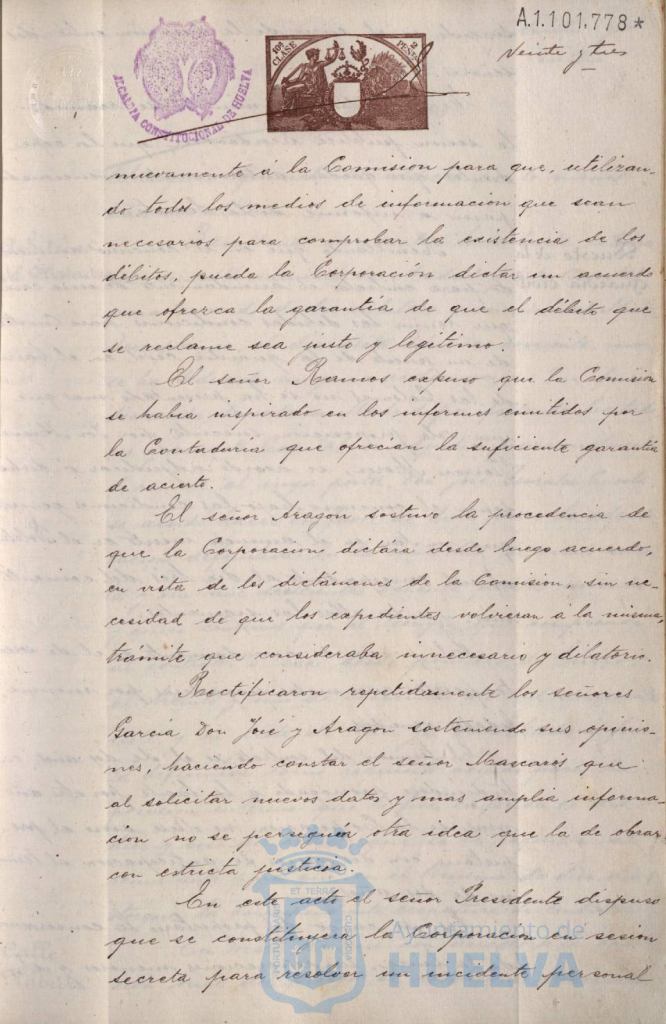 A.1.101.778*
Veinte y tres
ALCALDIA CONSTITUCIONAL DE HUELVA
10ª CLASE
2 PESETAS
nuevamente á la Comision para que, utilizan-
do todos los medios de informacion que sean
necesarios para comprobar la existencia de los
débitos, pueda la Corporación dictar un acuerdo
que ofrezca la garantía de que el débito que
se reclame sea justo y legitimo.
El señor Ramos expuso que la Comision
se habia inspirado en los informes emitidos por
la Contaduría que ofrecian la suficiente garantia
de acierto.
El señor Aragon sostuvo la procedencia de
que la Corporacion dictára desde luego acuerdo,
en vista de los dictámenes de la Comision, sin ne-
cesidad de que los expedientes volvieran á la misma,
tramite que consideraba innecesario y dilatorio.
Rectificaron repetidamente los señores
Garcia Don José y Aragon sosteniendo sus opinio-
nes, haciendo constar el señor Mascarós que
al solicitar nuevos datos y mas amplia informa-
cion no se perseguía otra idea que la de obrar
con estricta justicia.
En este acto el señor Presidente dispuso
que se constituyera la Corporacion en sesion
secreta para resolver un incidente personal
Ayuntamiento de
HUELVA